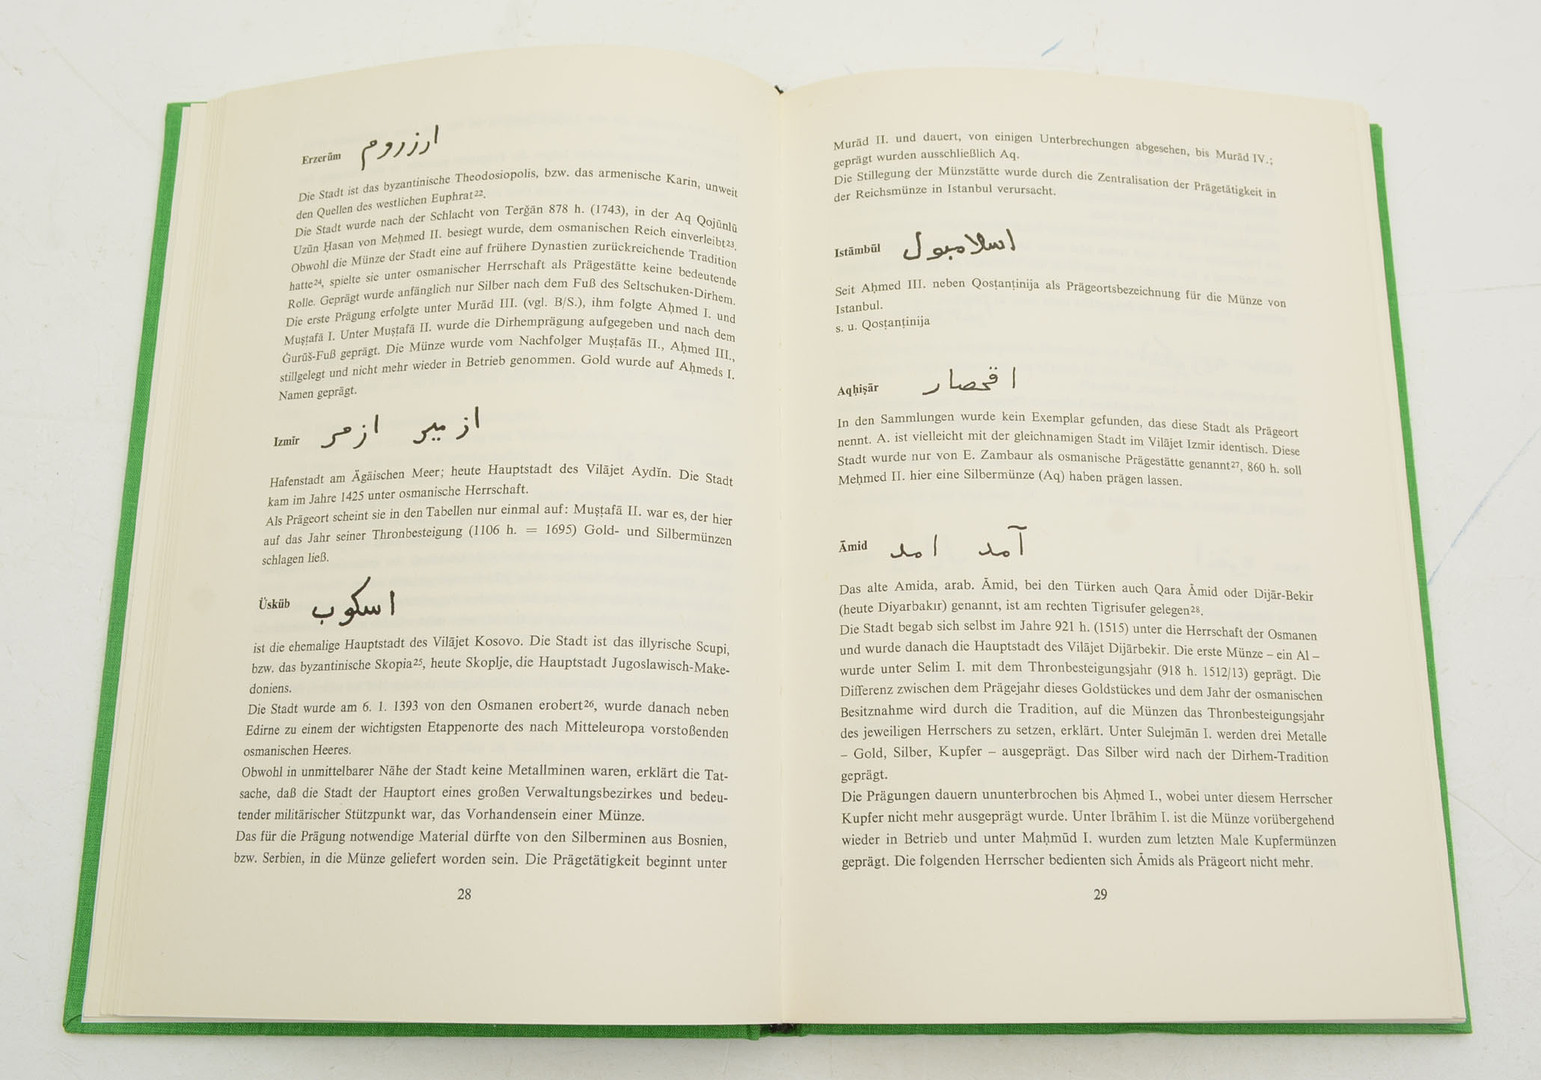 Erzerūm ارزروم
Die Stadt ist das byzantinische Theodosiopolis, bzw. das armenische Karin, unweit
den Quellen des westlichen Euphrat²².
Die Stadt wurde nach der Schlacht von Terğān 878 h. (1743), in der Aq Qojūnlū
Uzūn Ḥasan von Meḥmed II. besiegt wurde, dem osmanischen Reich einverleibt²³.
Obwohl die Münze der Stadt eine auf frühere Dynastien zurückreichende Tradition
hatte²⁴, spielte sie unter osmanischer Herrschaft als Prägestätte keine bedeutende
Rolle. Geprägt wurde anfänglich nur Silber nach dem Fuß des Seltschuken-Dirhem.
Die erste Prägung erfolgte unter Murād III. (vgl. B/S.), ihm folgte Aḥmed I. und
Muṣṭafā I. Unter Muṣṭafā II. wurde die Dirhemprägung aufgegeben und nach dem
Ġurūš-Fuß geprägt. Die Münze wurde vom Nachfolger Muṣṭafās II., Aḥmed III.,
stillgelegt und nicht mehr wieder in Betrieb genommen. Gold wurde auf Aḥmeds I.
Namen geprägt.
Izmīr ازمر ازمير
Hafenstadt am Ägäischen Meer; heute Hauptstadt des Vilājet Aydīn. Die Stadt
kam im Jahre 1425 unter osmanische Herrschaft.
Als Prägeort scheint sie in den Tabellen nur einmal auf: Muṣṭafā II. war es, der hier
auf das Jahr seiner Thronbesteigung (1106 h. = 1695) Gold- und Silbermünzen
schlagen ließ.
Üsküb اسكوب
ist die ehemalige Hauptstadt des Vilājet Kosovo. Die Stadt ist das illyrische Scupi,
bzw. das byzantinische Skopia²⁵, heute Skoplje, die Hauptstadt Jugoslawisch-Make-
doniens.
Die Stadt wurde am 6. 1. 1393 von den Osmanen erobert²⁶, wurde danach neben
Edirne zu einem der wichtigsten Etappenorte des nach Mitteleuropa vorstoßenden
osmanischen Heeres.
Obwohl in unmittelbarer Nähe der Stadt keine Metallminen waren, erklärt die Tat-
sache, daß die Stadt der Hauptort eines großen Verwaltungsbezirkes und bedeu-
tender militärischer Stützpunkt war, das Vorhandensein einer Münze.
Das für die Prägung notwendige Material dürfte von den Silberminen aus Bosnien,
bzw. Serbien, in die Münze geliefert worden sein. Die Prägetätigkeit beginnt unter
28
Murād II. und dauert, von einigen Unterbrechungen abgesehen, bis Murād IV.;
geprägt wurden ausschließlich Aq.
Die Stillegung der Münzstätte wurde durch die Zentralisation der Prägetätigkeit in
der Reichsmünze in Istanbul verursacht.
Istāmbūl اسلامبول
Seit Aḥmed III. neben Qosṭanṭinija als Prägeortsbezeichnung für die Münze von
Istanbul.
s. u. Qosṭanṭinija
Aqḥiṣār اقحصار
In den Sammlungen wurde kein Exemplar gefunden, das diese Stadt als Prägeort
nennt. A. ist vielleicht mit der gleichnamigen Stadt im Vilājet Izmir identisch. Diese
Stadt wurde nur von E. Zambaur als osmanische Prägestätte genannt²⁷, 860 h. soll
Meḥmed II. hier eine Silbermünze (Aq) haben prägen lassen.
Āmid امد آمد
Das alte Amida, arab. Āmid, bei den Türken auch Qara Āmid oder Dijār-Bekir
(heute Diyarbakır) genannt, ist am rechten Tigrisufer gelegen²⁸.
Die Stadt begab sich selbst im Jahre 921 h. (1515) unter die Herrschaft der Osmanen
und wurde danach die Hauptstadt des Vilājet Dijārbekir. Die erste Münze – ein Al –
wurde unter Selim I. mit dem Thronbesteigungsjahr (918 h. 1512/13) geprägt. Die
Differenz zwischen dem Prägejahr dieses Goldstückes und dem Jahr der osmanischen
Besitznahme wird durch die Tradition, auf die Münzen das Thronbesteigungsjahr
des jeweiligen Herrschers zu setzen, erklärt. Unter Sulejmān I. werden drei Metalle
– Gold, Silber, Kupfer – ausgeprägt. Das Silber wird nach der Dirhem-Tradition
geprägt.
Die Prägungen dauern ununterbrochen bis Aḥmed I., wobei unter diesem Herrscher
Kupfer nicht mehr ausgeprägt wurde. Unter Ibrāhīm I. ist die Münze vorübergehend
wieder in Betrieb und unter Maḥmūd I. wurden zum letzten Male Kupfermünzen
geprägt. Die folgenden Herrscher bedienten sich Āmids als Prägeort nicht mehr.
29